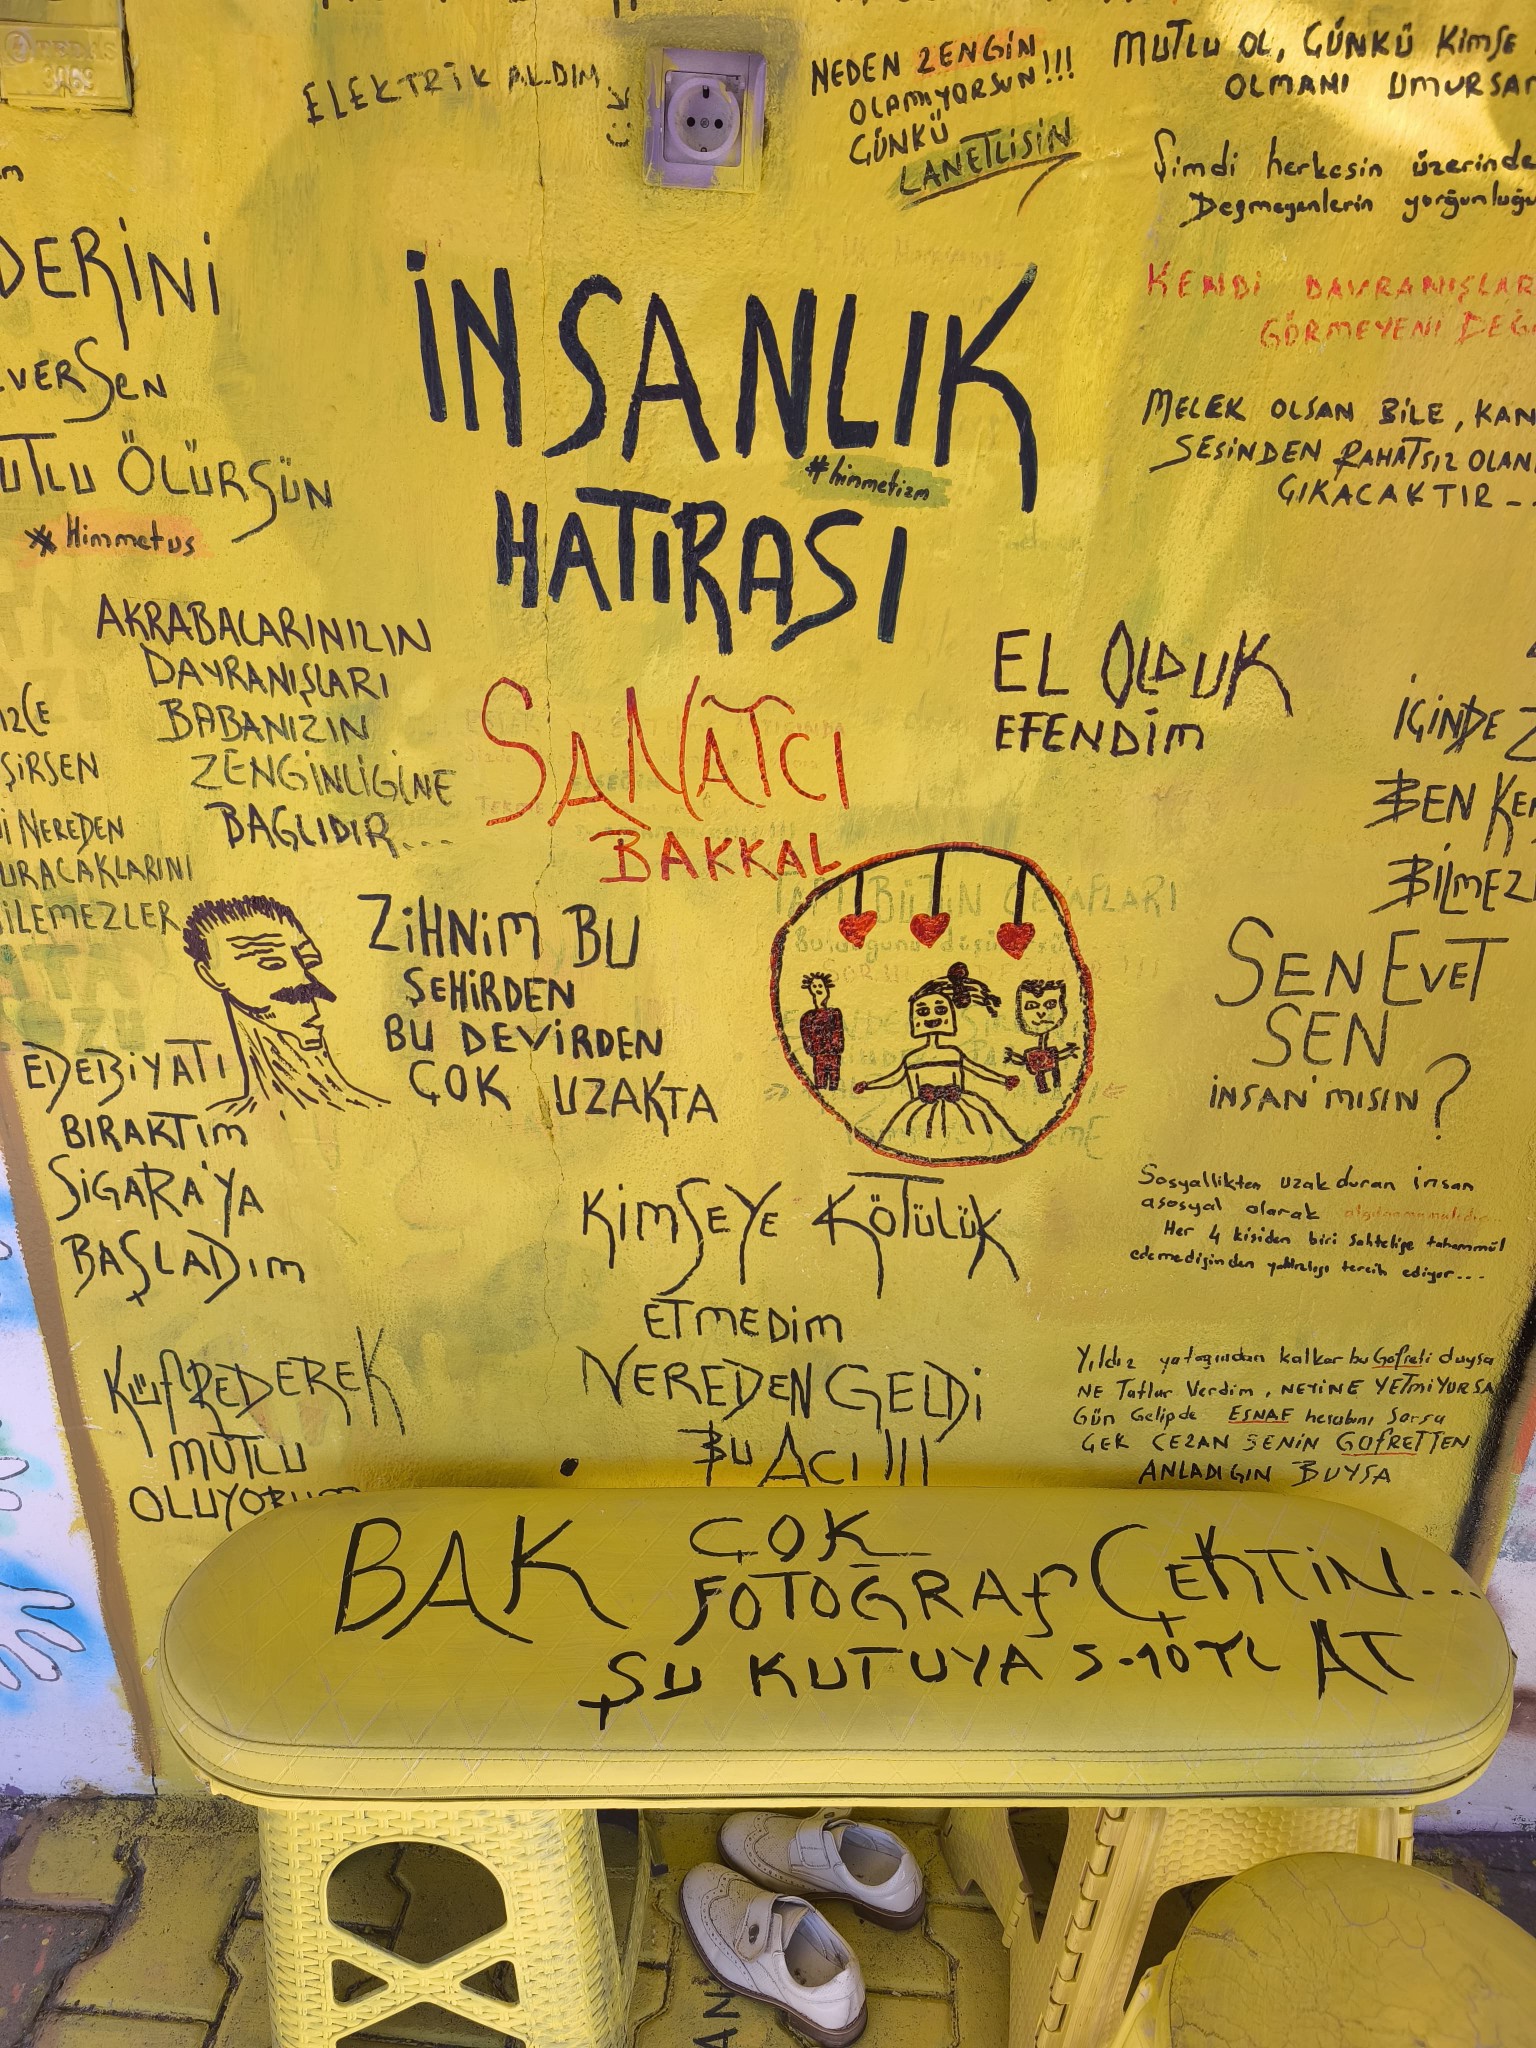 TEDAŞ
ELEKTRİK ALDIM
NEDEN ZENGİN
OLAMIYORSUN!!!
ÇÜNKÜ
LANETLİSİN
MUTLU OL, ÇÜNKÜ KİMSE
OLMANI UMURSA
Şimdi herkesin üzerinde
Değmeyenlerin yorğunluğu
KENDİ DAVRANIŞLAR
GÖRMEYENİ DEĞ
MELEK OLSAN BİLE, KAN
SESİNDEN RAHATSIZ OLAN
ÇIKACAKTIR...
DERİNİ
VERSEN
UTLU ÖLÜRSÜN
#Himmetus
İNSANLIK
#himmetizm
HATIRASI
AKRABALARINIZIN
DAVRANIŞLARI
BABANIZIN
ZENGİNLİGİNE
BAGLIDIR...
SANATCI
BAKKAL
EL OLDUK
EFENDİM
İÇİNDE
BEN KE
BİLMEZ
İZCE
ŞİRSEN
İ NEREDEN
URACAKLARINI
İLEMEZLER
ZİHNİM BU
ŞEHİRDEN
BU DEVİRDEN
ÇOK UZAKTA
SEN EVET
SEN
İNSAN MISIN?
EDEBİYATI
BIRAKTIM
SİGARA'YA
BAŞLADIM
KİMSEYE KÖTÜLÜK
ETMEDİM
NEREDEN GELDİ
BU ACI !!!
Sosyallikten uzak duran insan
asosyal olarak algılanmamalıdır...
Her 4 kişiden biri sahteliğe tahammül
edemediğinden yalnızlığı tercih ediyor...
KÜFREDEREK
MUTLU
OLUYORUM
Yıldız yatağından kalkar bu Gofreti duysa
NE Tatlar Verdim, NEYİNE YETMİYORSA
Gün Gelipde ESNAF hesabını Sorsa
ÇEK CEZAN SENİN GOFRETTEN
ANLADIGIN BUYSA
BAK ÇOK
FOTOĞRAF ÇEKTİN...
ŞU KUTUYA 5-10 TL AT